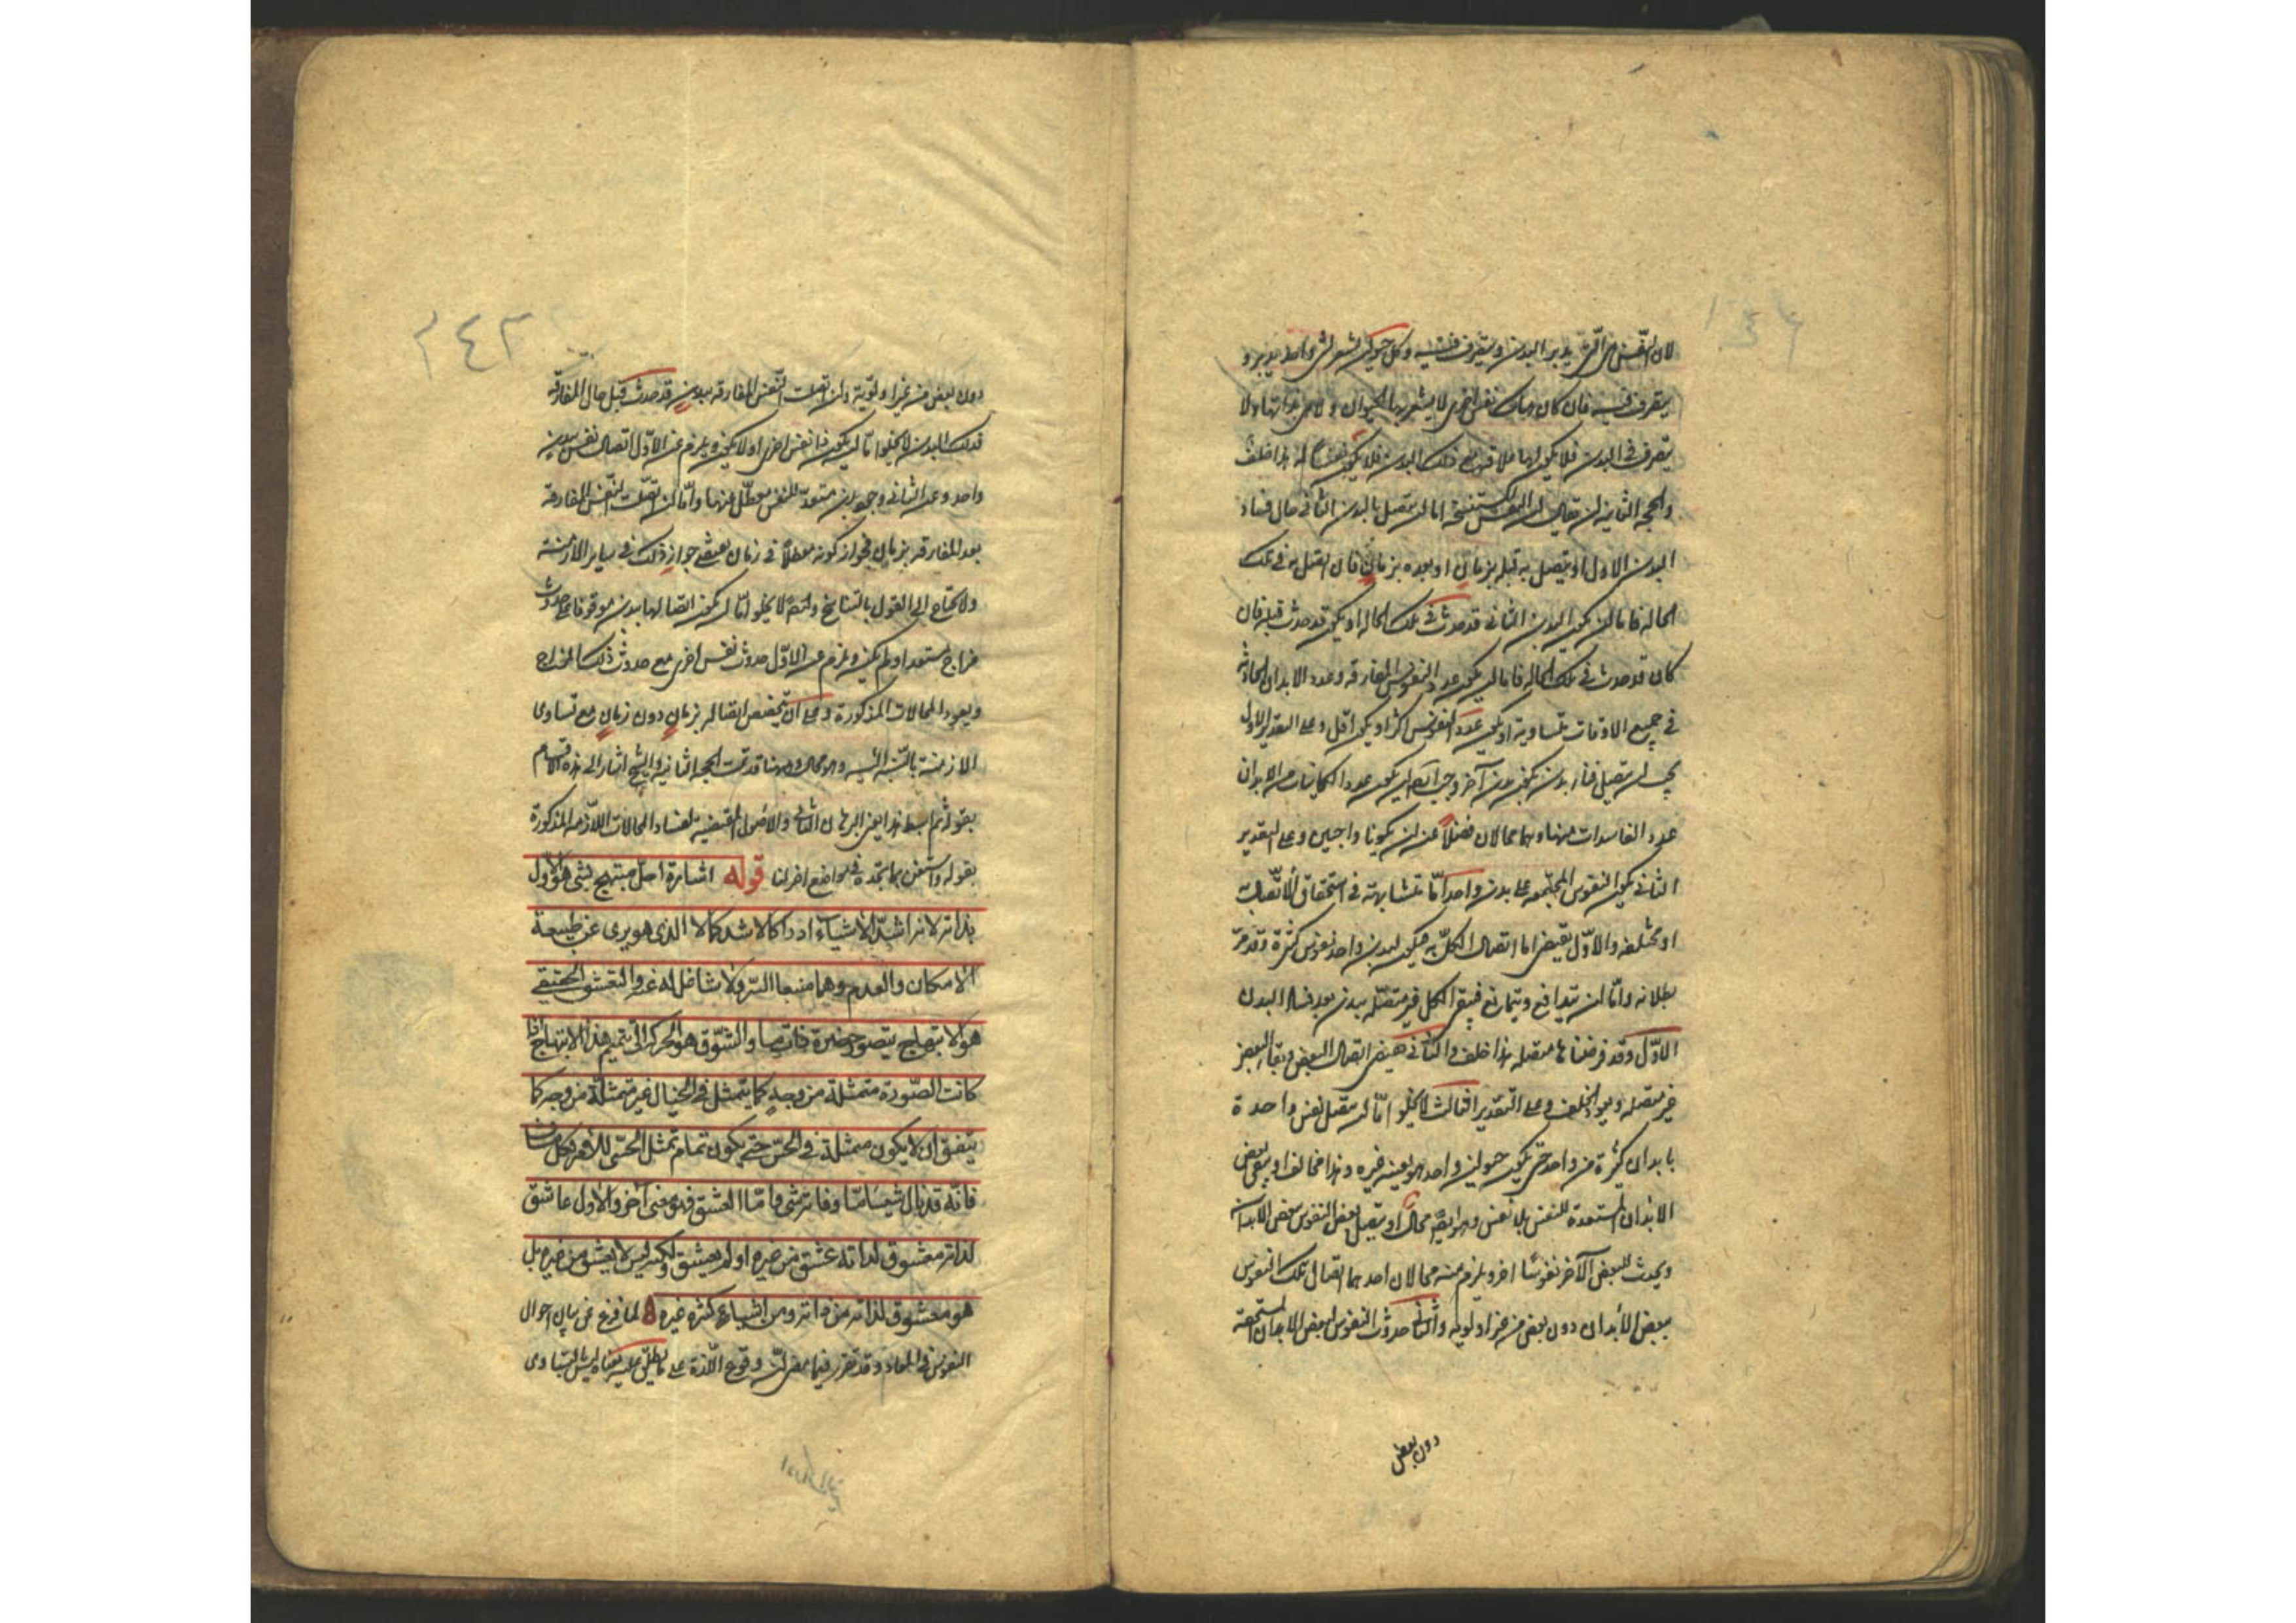 لان النفس هي التي يدبر البدن ويتصرف فيه وكل حيوان يشعر بشئ واحد يدبره و
يتصرف فيه فان كان هناك نفس اخرى لا يشعر بها الحيوان ولا هي بذاتها ولا
يتصرف في البدن فلا يكون لها علاقة مع ذلك البدن فلا يكون نفسا له هذا خلف
والحجة الثانية ان يقال ان النفس المستنسخة اما ان يتصل بالبدن الثاني حال فساد
البدن الاول او يتصل به قبله بزمان او بعده بزمان فان اتصل به في تلك
الحالة فاما ان يكون البدن الثاني قد حدث في تلك الحالة او يكون قد حدث قبله فان
كان قد حدث في تلك الحالة فاما ان يكون عدد النفوس المفارقة وعدد الابدان الحادثة
في جميع الاوقات متساوية او يكون عدد النفوس اكثر او يكون اقل وعلى التقدير الاول
يجب ان يتصل فناء بدن بكون بدن آخر وجب ايضا ان يكون عدد الكاينات من الابدان
عدد الفاسدات منها وهما محالان فضلا عن ان يكونا واجبين وعلى التقدير
الثاني يكون النفوس المجتمعة على بدن واحد اما متشابهة في استحقاق الاتصال به
او مختلفة والاول يقتضي اما اتصال الكل به فيكون لبدن واحد نفوس كثيرة وقد مر
بطلانه واما ان يتدافع ويتمانع فيبقى الكل غير متصلة ببدن بعد فساد البدن
الاول وقد فرضناها متصلة هذا خلف والثاني يقتضي اتصال البعض وبقاء البعض
غير متصلة ويعود الخلف وعلى التقدير الثالث لا يخلو اما ان يتصل نفس واحدة
بابدان كثيرة من واحد حتى يكون حيوان واحد هو بعينه غيره وهذا محال او يبقى بعض
الابدان المستعدة للنفس بلا نفس وهو ايضا محال او يتصل بعض النفوس ببعض الابدان
ويحدث للبعض الآخر نفوسا اخر ويلزم منه محالان احدهما اتصال تلك النفوس
ببعض الأبدان دون بعض من غير اولوية والثاني حدوث النفوس لبعض الابدان المستحقة
دون بعض
٢٤٢
دون بعض من غير اولوية وان اتصلت النفس المفارقة ببدن قد حدث قبل حال المفارقة
فذلك البدن لا يخلو اما ان يكون ذا نفس اخرى او لا يكون ويلزم على الاول اتصال نفسين ببدن
واحد وعلى الثاني وجود بدن مستعد للنفس معطل عنها واما ان تصلت النفس المفارقة
بعد المفارقة بزمان فجواز كونه معطلا في زمان يقتضي جواز ذلك في سائر الازمنة
ولا يحتاج الى القول بالتناسخ وايضا لا يخلو اما ان يكون اتصالها ببدن موقوفا على حدوث
مزاج مستعد او لم يكن ويلزم على الاول حدوث نفس اخرى مع حدوث ذلك المزاج
ويعود المحالات المذكورة وعلى الثاني يخصص اتصاله بزمان دون زمان مع تساوى
الازمنة بالنسبة اليه وهو محال وههنا قد تمت الحجة الثانية والشيخ اشار الى هذه الاقسام
بقوله ثم ابسط هذا يعني البرهان الثاني والاصول المقتضية لفساد المحالات اللازمة المذكورة
بقوله واستغن بما تجده في مواضع اخر لنا قوله اشارة اجل مبتهج بشئ هو الأول
بذاته لانه اشد الأشياء ادراكا لاشد كمالا الذى هو برى عن طبيعة
الامكان والعدم وهما منبعا الشر ولا شاغل له عنه والعشق الحقيقي
هو الابتهاج بتصور حضرة ذات ما والشوق هو الحركة الى تتميم هذا الابتهاج اذا
كانت الصورة متمثلة من وجه كما يتمثل في الخيال غير متمثلة من وجه كما
يتفق ان لا يكون متمثلة في الحس حتى يكون تمام تمثل الحسى للأمر فكل مشتاق
فانه قد نال شيئا ما وفاته شئ واما العشق فهو معنى آخر والأول عاشق
لذاته معشوق لذاته عشق من غيره او لم يعشق ولكنه ليس لا يعشق من غيره بل
هو معشوق لذاته من ذاته ومن اشياء كثيرة غيره لما فرغ عن بيان احوال
النفوس في المعاد وقد تقرر فيما مضى ان وقوع اللذة على ما يطلق عليه ليس بالتساوى